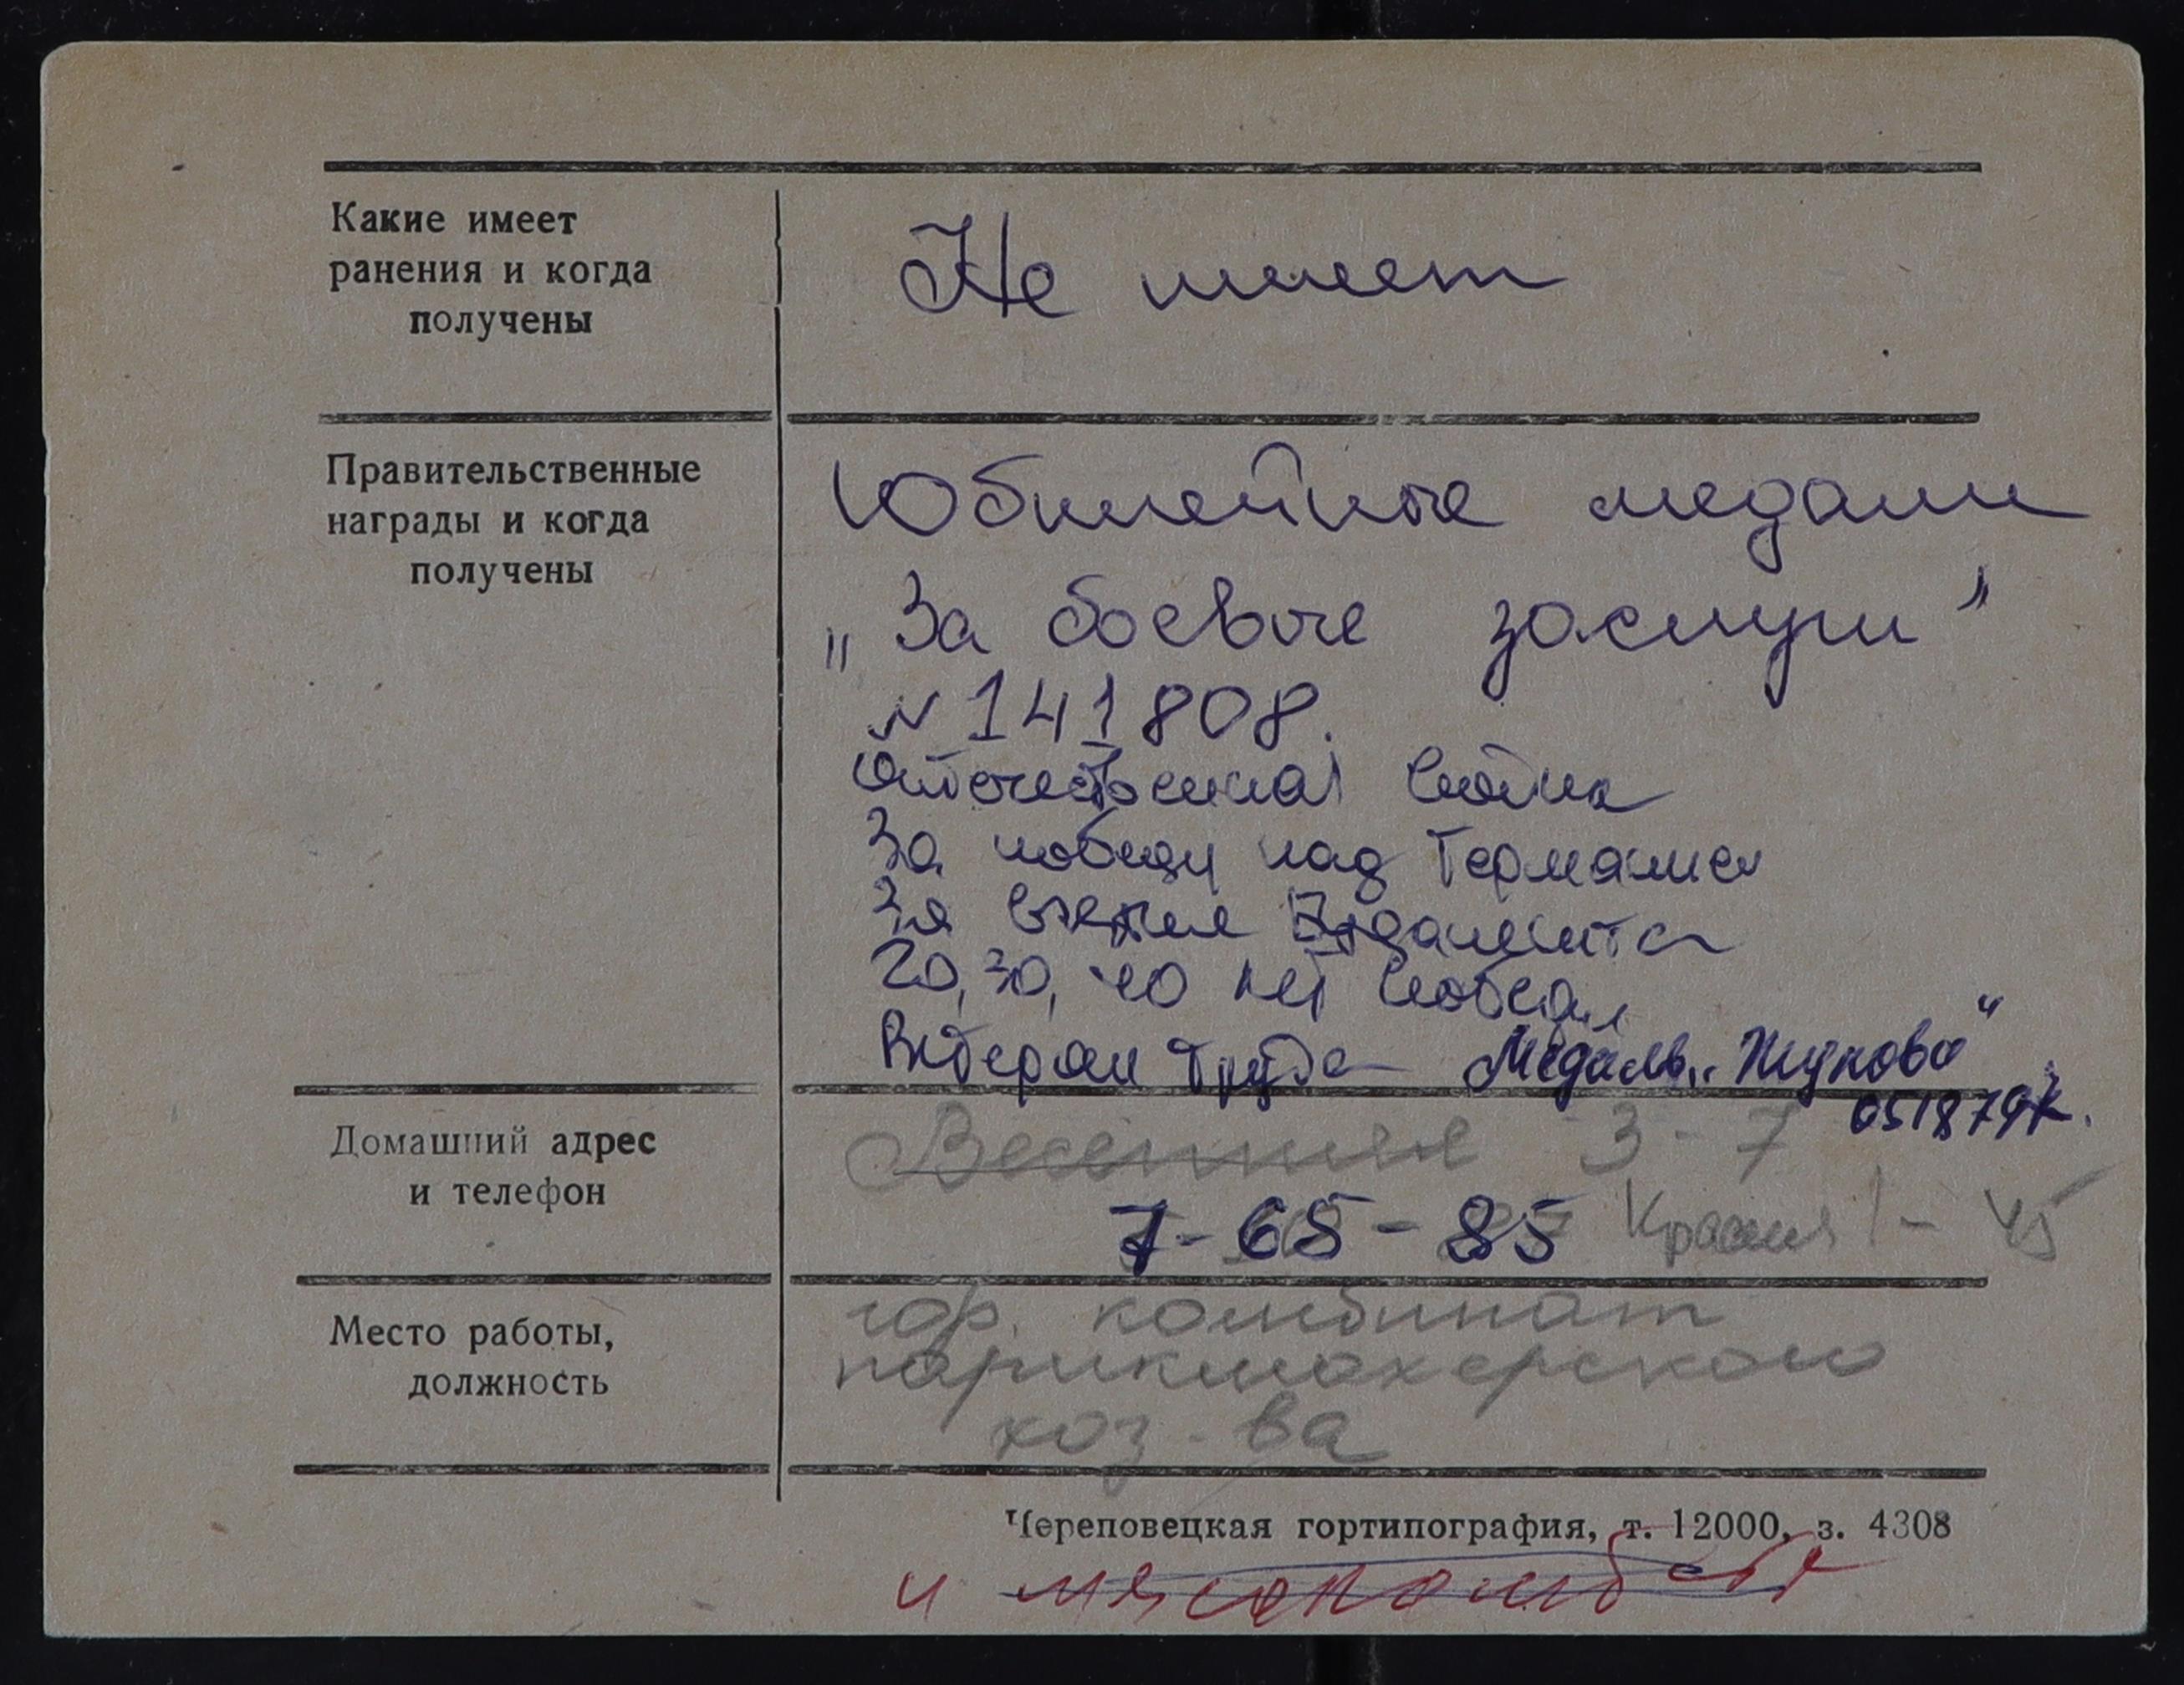 Какие имеет
ранения и когда
получены
Не имеет
Правительственные
награды и когда
получены
Юбилейные медали
„За боевые заслуги”
N 141808.
Отечественная война
За победу над Германией
За взятие Будапешта
20, 30, 40 лет победы
Ветеран труда Медаль „Жукова“
Домашний адрес
и телефон
Весенняя 3-7
7-65-85 Красная 1-45
Место работы,
должность
гор. комбинат
парикмахерского
хоз-ва
Череповецкая гортипография, т. 12000, з. 4308
и